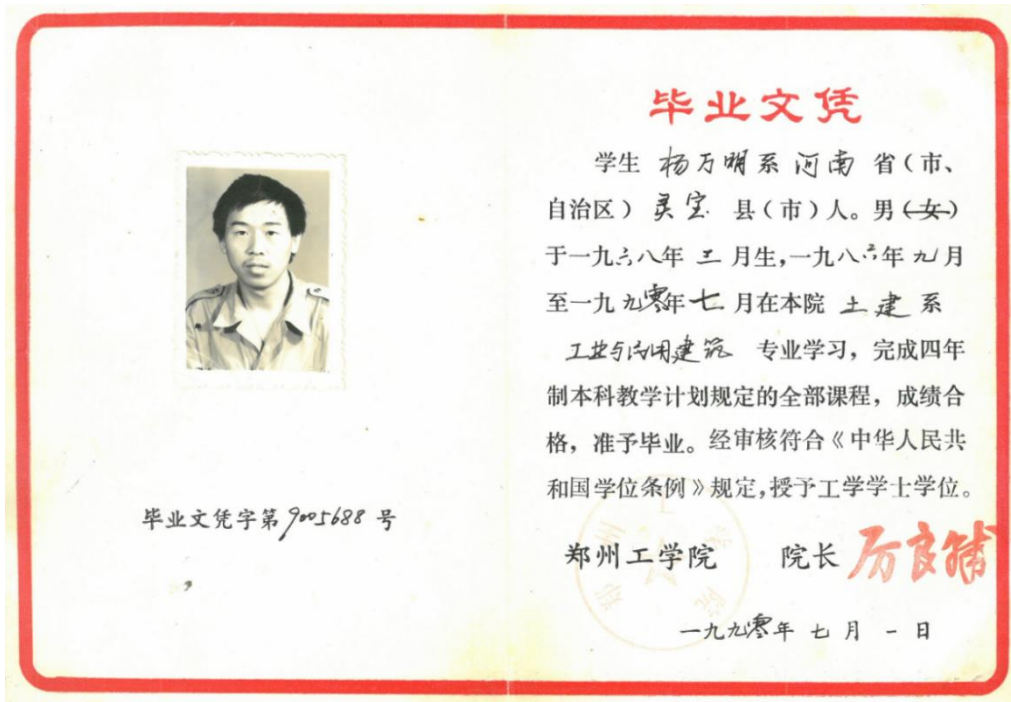 毕业文凭
学生 杨万明系河南 省(市、
自治区)灵宝 县(市)人。男(女)
于一九六八年 三 月生,一九八六年 九月
至一九九零年 七 月在本院 土建 系
工业与民用建筑 专业学习,完成四年
制本科教学计划规定的全部课程,成绩合
格,准予毕业。经审核符合《中华人民共
和国学位条例》规定,授予工学学士学位。
郑州工学院 院长 厉良辅
一九九零年 七 月 一 日
毕业文凭字第9005688号
郑州工学院